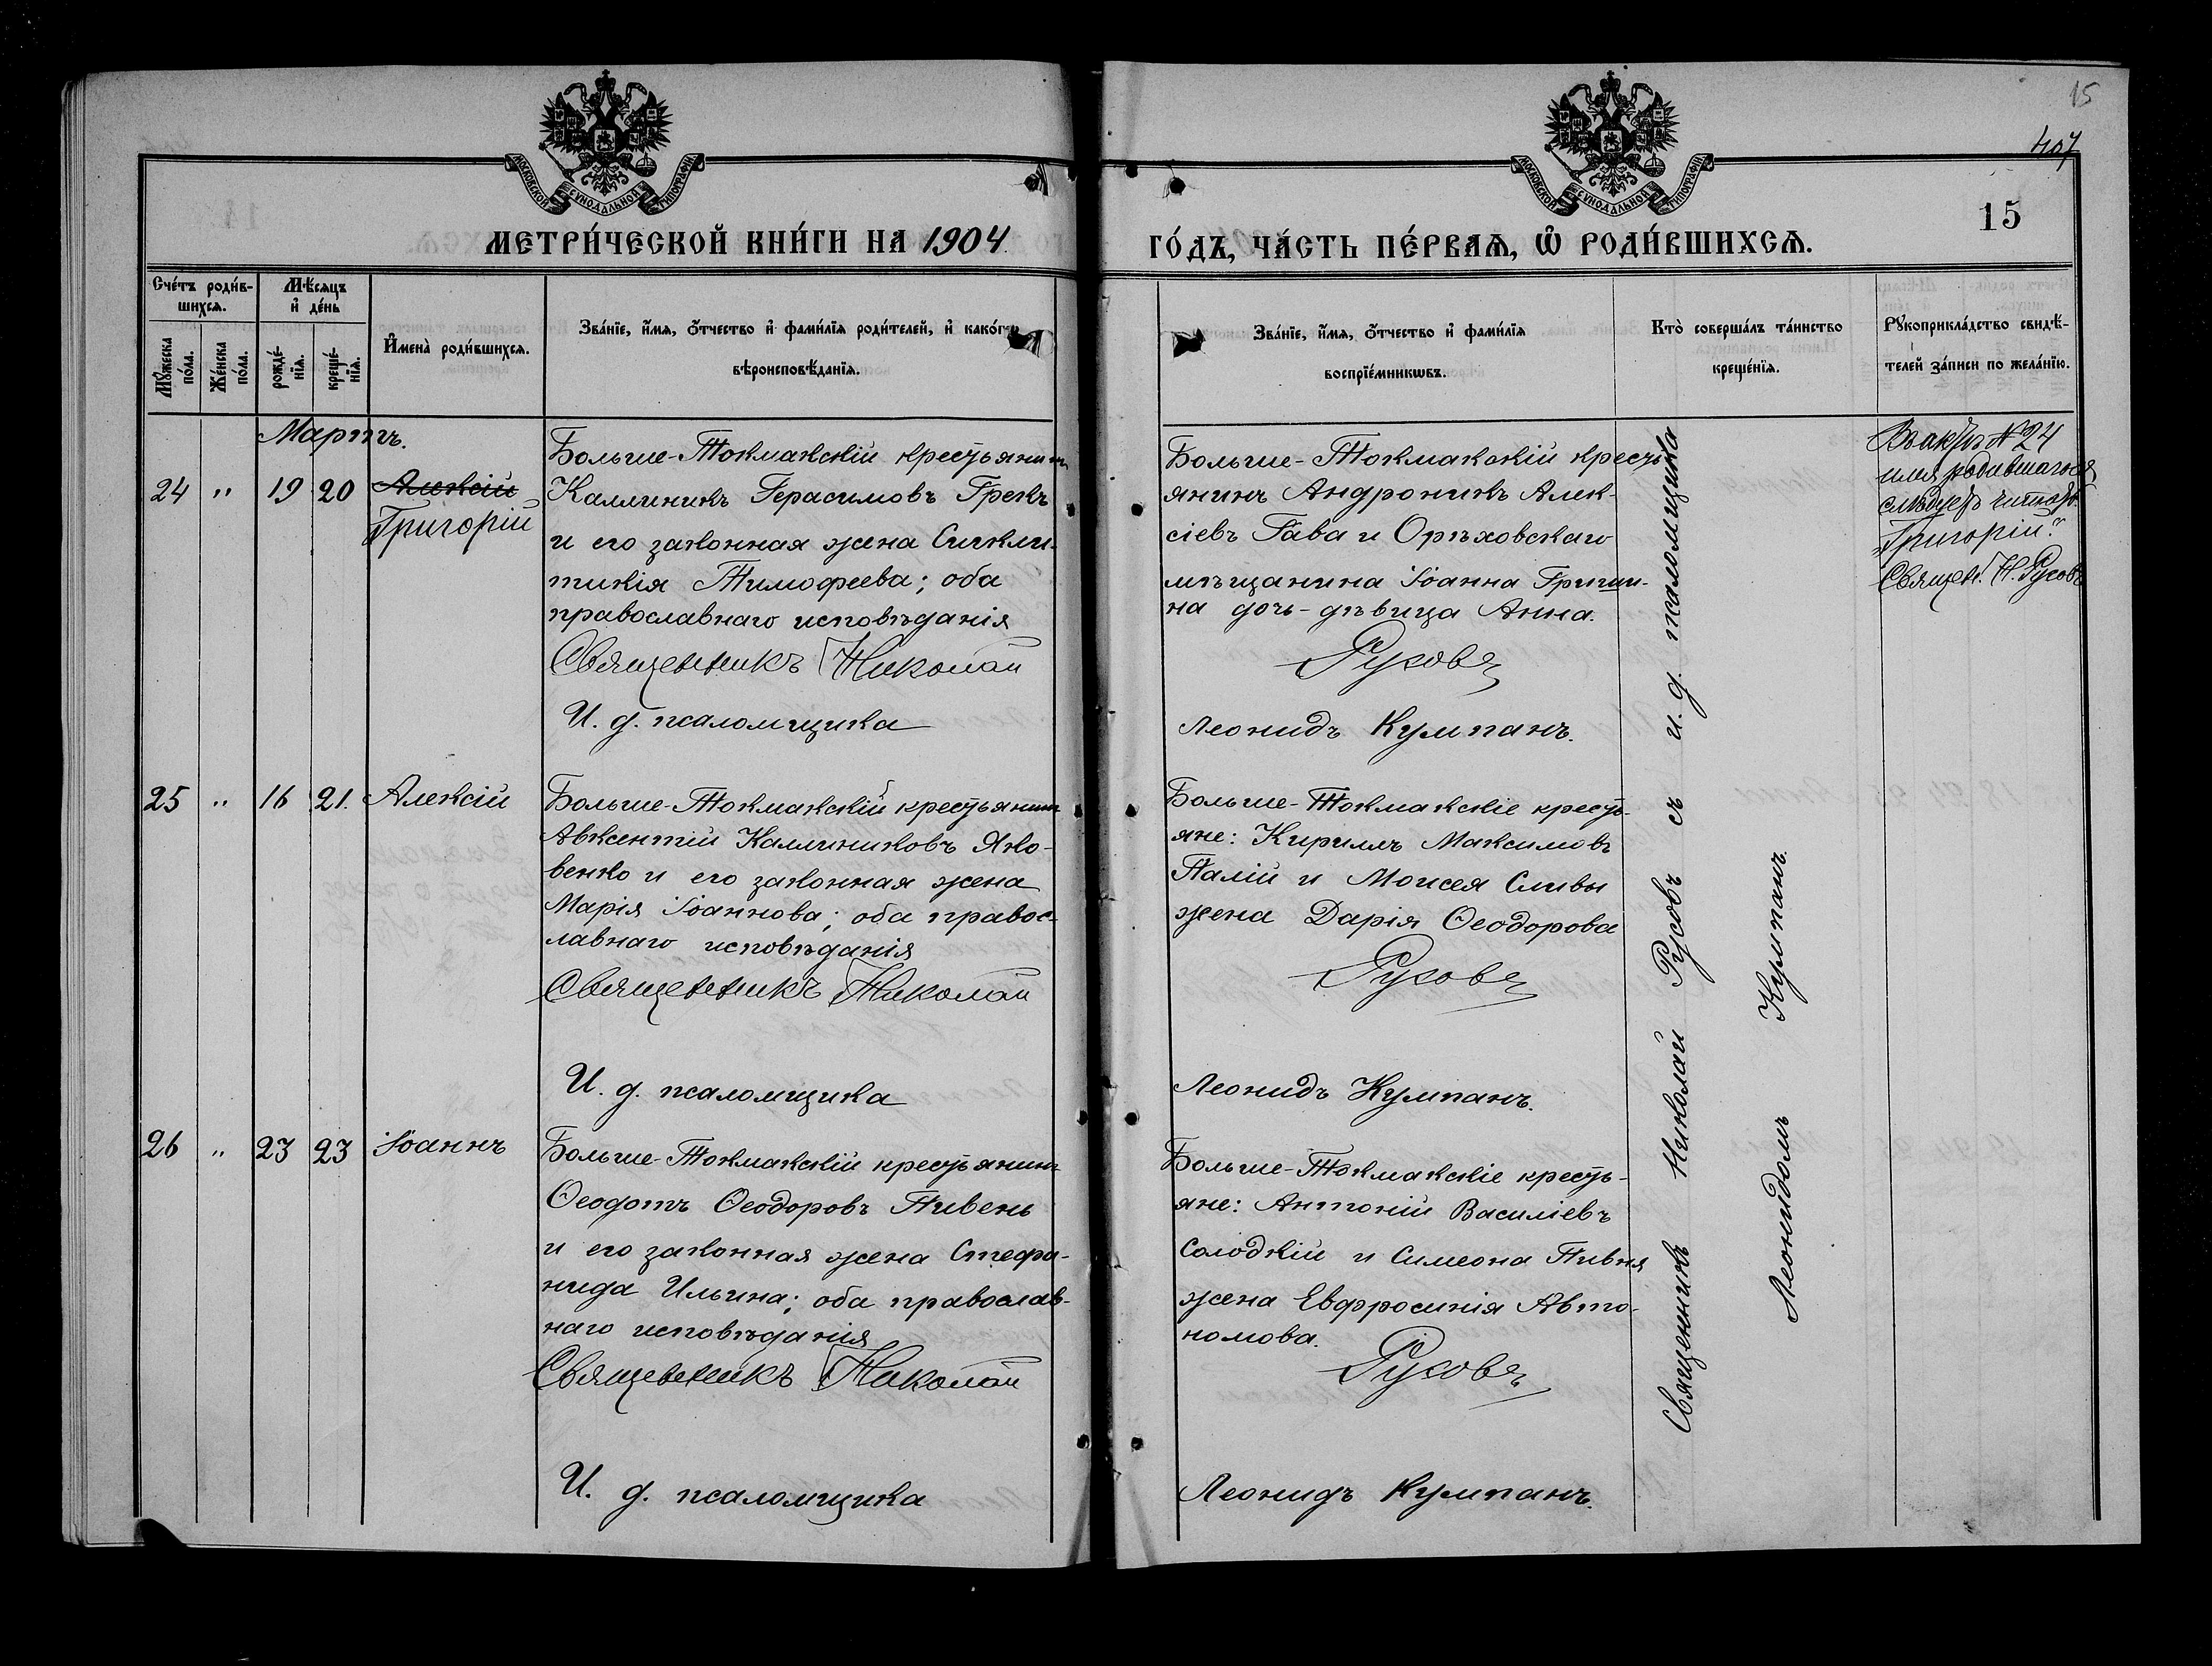 15
407
МОСКОВСКОЙ СѴНОДАЛЬНОЙ ТИПОГРАФІИ
МОСКОВСКОЙ СѴНОДАЛЬНОЙ ТИПОГРАФІИ
15
МЕТРИ́ЧЕСКОЙ КНИ́ГИ НА 1904
ГО́ДЪ, ЧА́СТЬ ПЕ́РВАѦ, Ѡ҆ РОДИ́ВШИХСѦ.
Сче́тъ роди́в-
шихся.
Мѣ́сяцъ
и҆ де́нь
Мꙋ́жеска
по́ла.
Же́нска
по́ла.
рожде́-
нїя.
креще́-
нїя.
И҆мена̀ роди́вшихся.
Зва́нїе, и҆́мя, о҆́тчество и҆ фами́лїя роди́телей, и҆ како́гѡ
вѣроисповѣ́данїя.
Зва́нїе, и҆́мя, о҆́тчество и҆ фами́лїя
воспрїе́мникѡвъ.
Кто̀ соверша́лъ та́инство
креще́нїя.
Рꙋкоприкла́дство свидѣ́-
телей за́писи по жела́нїю.
Мартъ.
24 " 19 20 Алексій
Григорій
Больше-Токмакскій крестьянинъ
Каллиникъ Герасимовъ Грекъ
и его законная жена Сигкли-
тикія Тимофеева; оба
православнаго исповѣданія
Священникъ Николай
И. д. псаломщика
Больше-Токмакскій кресть
янинъ Андроникъ Алек-
сіевъ Гава и Орѣховскаго
мѣщанина Іоанна Гриши-
на дочь-дѣвица Анна.
Русовъ
Леонидъ Кумпанъ.
Въ актѣ № 24
имя родившагося
слѣдуетъ читать:
"Григорій".
Священ. Н. Русовъ
25 " 16 21. Алексій
Больше-Токмакскій крестьянинъ
Авксентій Каллиниковъ Яко-
венко и его законная жена
Марія Іоаннова; оба правос-
лавнаго исповѣданія
Священникъ Николай
И. д. псаломщика
Больше-Токмакскіе кресть-
яне: Кириллъ Максимовъ
Палій и Моисея Сливы
жена Дарія Ѳеодорова
Русовъ
Леонидъ Кумпанъ.
26 " 23 23 Іоаннъ
Больше-Токмакскій крестьянинъ
Ѳеодотъ Ѳеодоровъ Пивень
и его законная жена Стефа-
нида Ильина; оба православ-
наго исповѣданія
Священникъ Николай
И. д. псаломщика
Больше-Токмакскіе кресть-
яне: Антоній Василіевъ
Солодкій и Симеона Пивня
жена Евфросинія Авто-
номова.
Русовъ
Леонидъ Кумпанъ.
Священникъ Николай Русовъ съ и. д. псаломщика
Леонидомъ Кумпанъ.